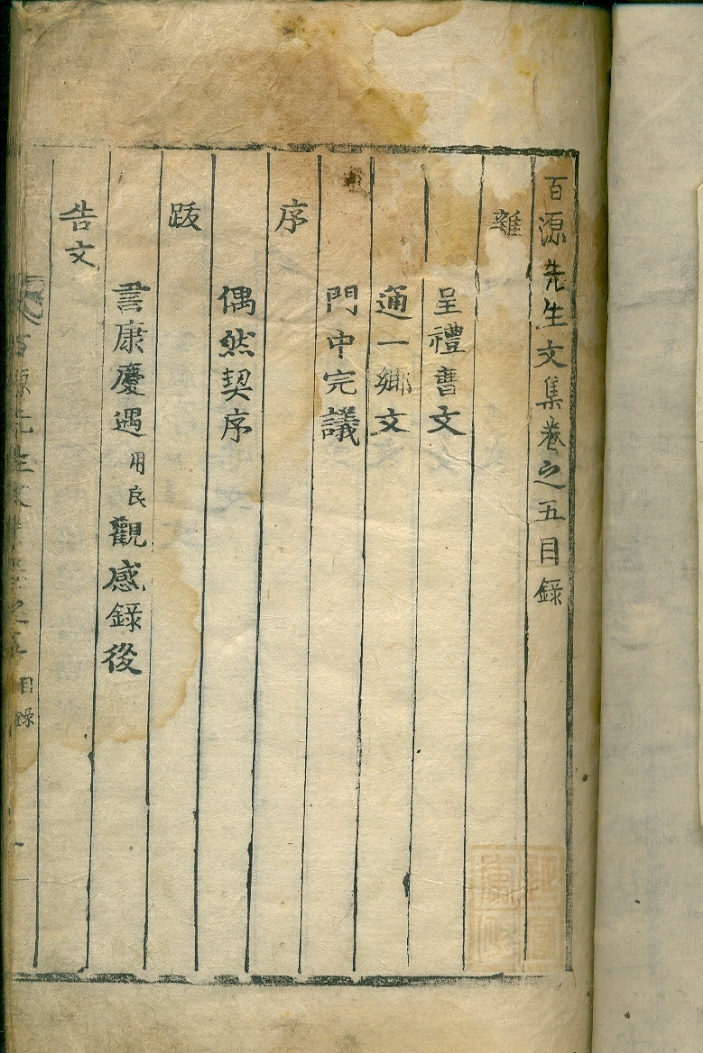 百源先生文集卷之五目錄
雜
呈禮曹文
通一鄉文
門中完議
序
偶然契序
跋
書康慶遇用良觀感錄後
告文
百源先生文集卷之五 目錄 一